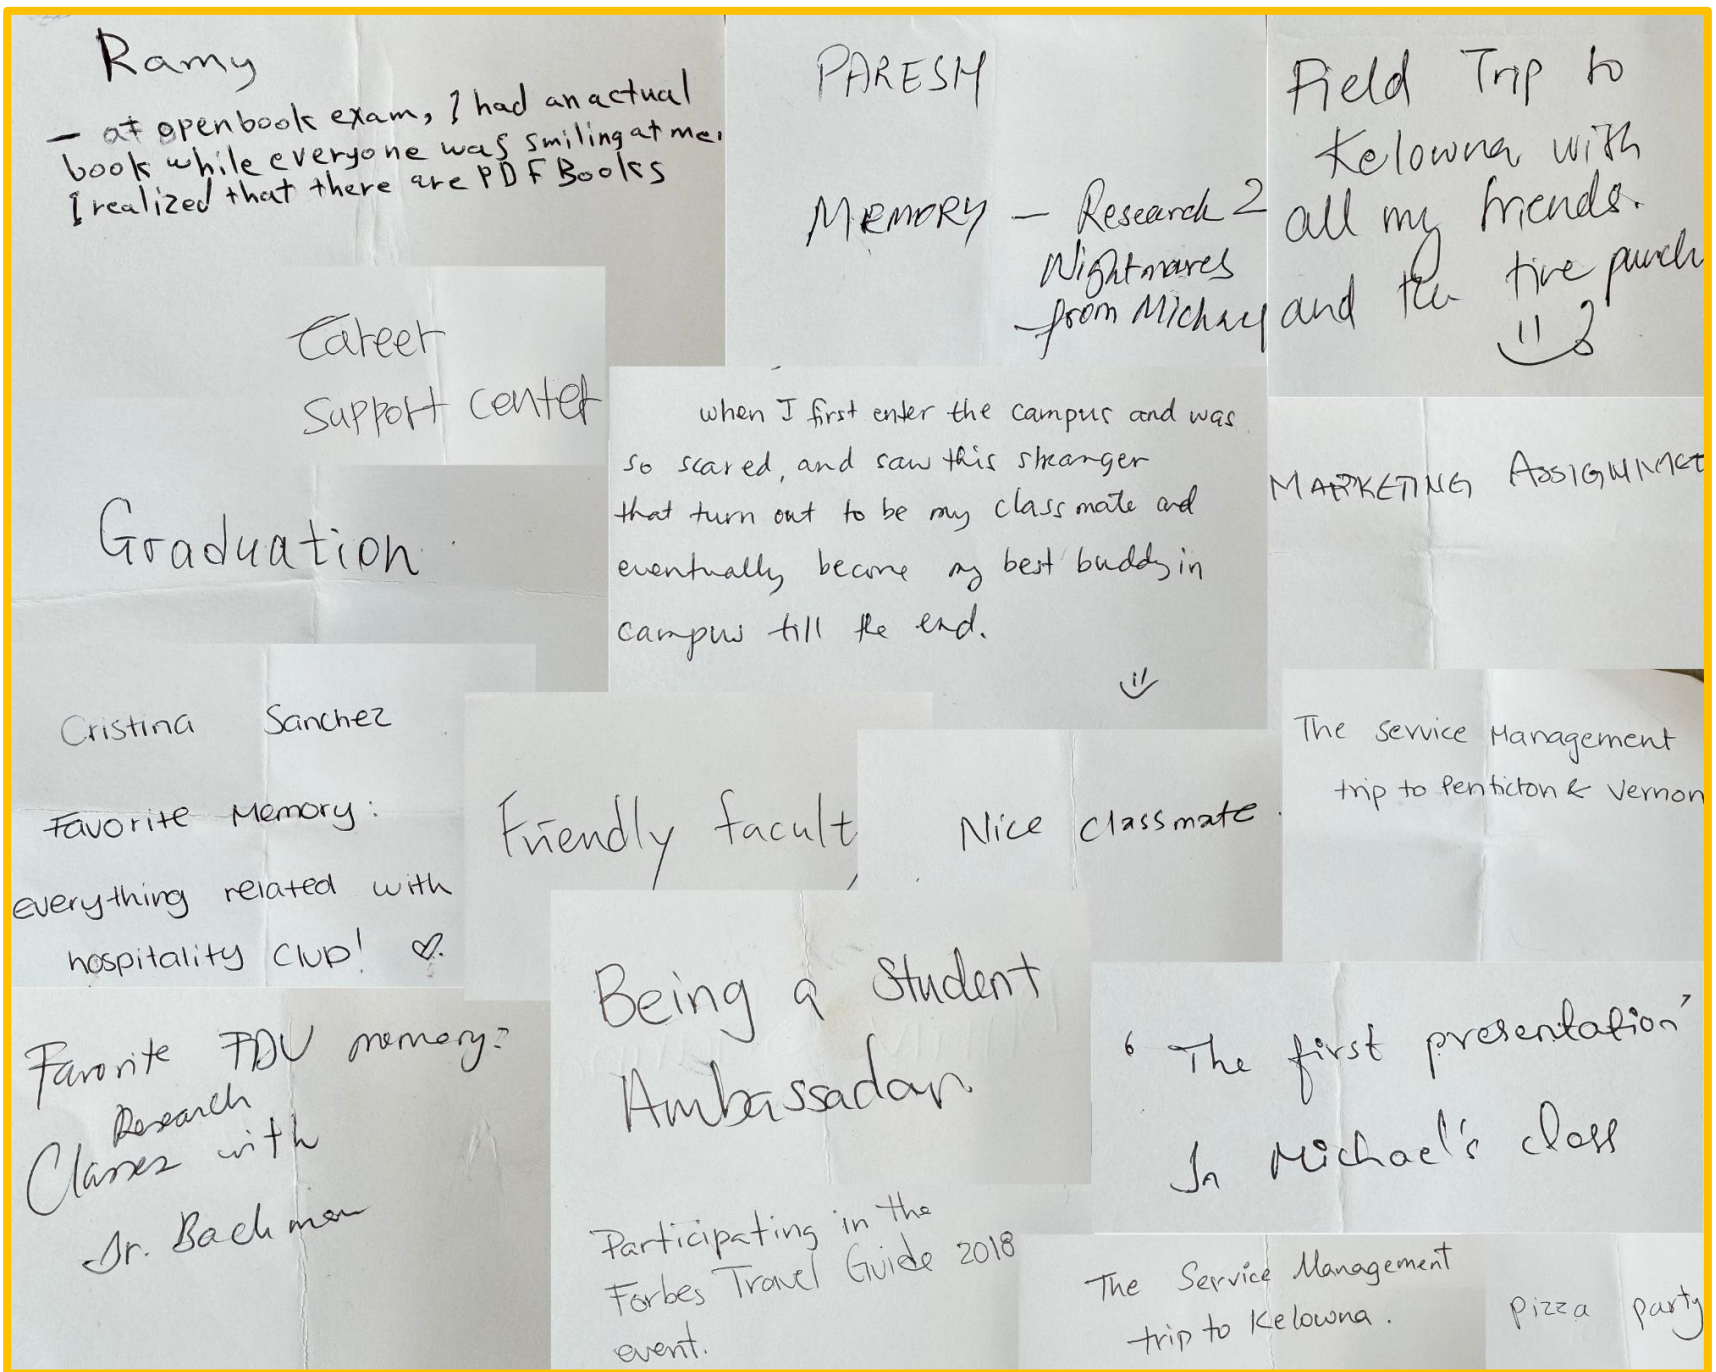 Ramy
- at openbook exam, I had an actual
book while everyone was smiling at me.
I realized that there are PDF Books
PARESH
MEMORY - Research 2
Nightmares
from Michael
Field Trip to
Kelowna with
all my friends.
and the tire punch
Career
Support center
when I first enter the campus and was
so scared, and saw this stranger
that turn out to be my classmate and
eventually become my best buddy in
campus till the end.
MARKETING
Graduation.
Cristina Sanchez
Favorite Memory:
everything related with
hospitality Club!
Friendly facult
Nice classmate.
The Service Management
trip to Penticton & Vernon
Being a Student
Ambassador
Favorite FDU memory:
Research
Classes with
Dr. Bachman
'The first presentation'
In Michael's class
Participating in the
Forbes Travel Guide 2018
event.
The Service Management
trip to Kelowna.
pizza party